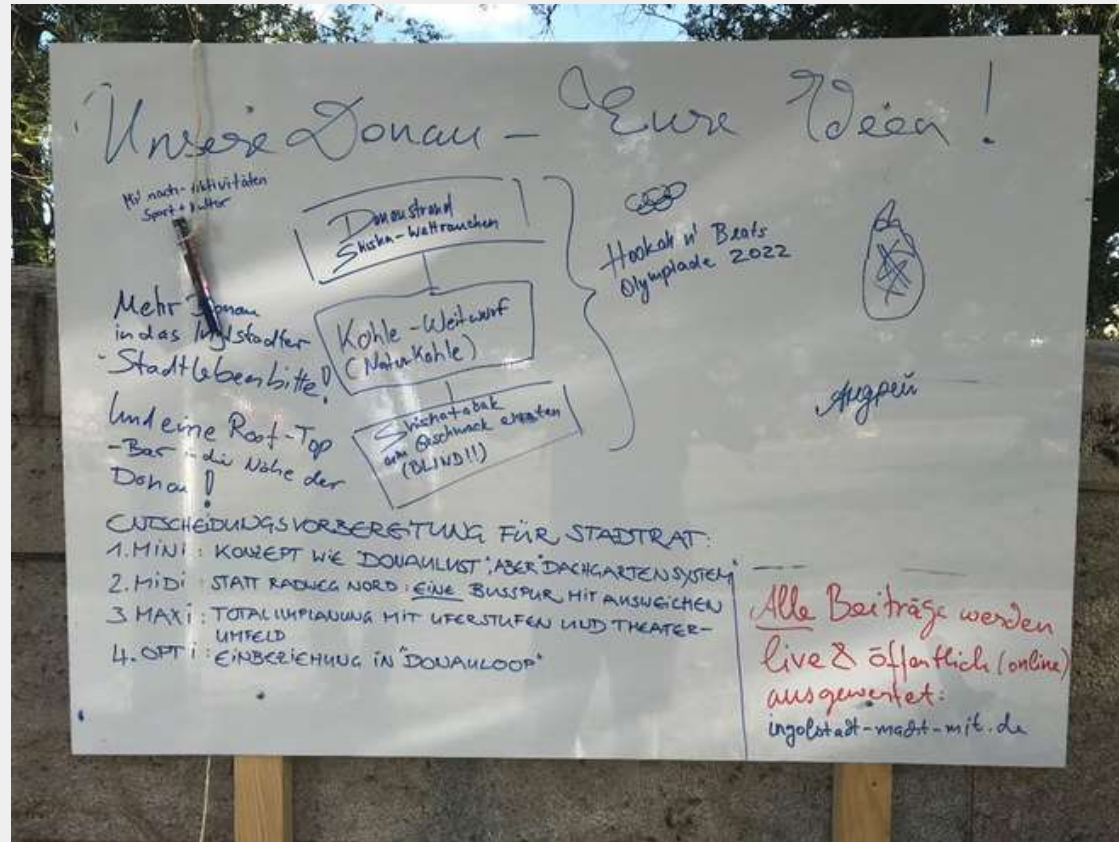 Unsere Donau - Eure Ideen!
Mit nach-Aktivitäten
Sport + Kultur
Donaustrand
Shisha-Wettrauchen
Kohle-Weitwurf
(Natur-Kohle)
Shishatabak
am Geschmack erraten
(BLIND!!)
Hookah n' Beats
Olympiade 2022
Андрей
Mehr Donau
in das Ingolstädter
Stadtleben bitte!
Und eine Roof-Top
-Bar in die Nähe der
Donau!
ENTSCHEIDUNGSVORBEREITUNG FÜR STADTRAT:
1. MINI: KONZEPT WIE DONAULUST, ABER "DACHGARTENSYSTEM"
2. MIDI: STATT RADWEG NORD: EINE BUSSPUR MIT AUSWEICHEN
3. MAXI: TOTALUMPLANUNG MIT UFERSTUFEN UND THEATER-
UMFELD
4. OPTI: EINBEZIEHUNG IN "DONAULOOP"
Alle Beiträge werden
live & öffentlich (online)
ausgewertet:
ingolstadt-macht-mit.de